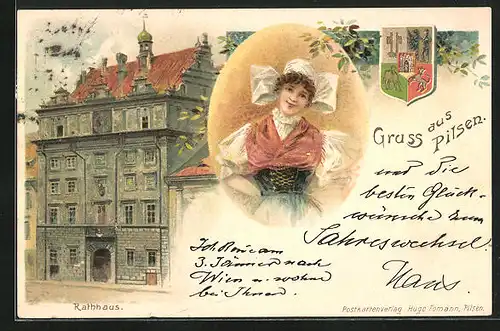 Gruss aus
Pilsen.
und die
besten Glück-
wünsche zum
Jahreswechsel.
Hans.
Ich komme am
3. Jänner nach
Wien u. wohne
bei Ihnen.
Rathhaus.
Postkartenverlag Hugo Fomann, Pilsen.